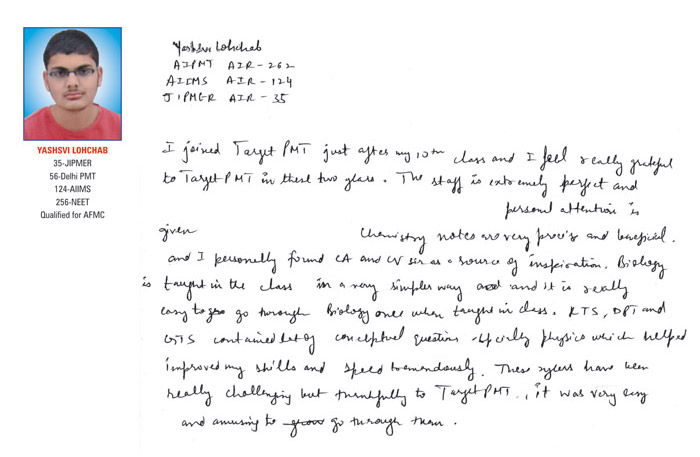 YASHSVI LOHCHAB
35-JIPMER
56-Delhi PMT
124-AIIMS
256-NEET
Qualified for AFMC
Yashsvi Lohchab
AIPMT AIR - 262
AIIMS AIR - 124
JIPMER AIR - 35
I joined Target PMT just after my 10th class and I feel really grateful
to Target PMT in these two years. The staff is extremely perfect and
personal attention is
given Chemistry notes are very precis and beneficial.
and I personally found CA and CV sir as a source of inspiration. Biology
is taught in the class in a very simpler way and and it is really
easy to go go through Biology once when taught in class. RTS, DPT and
contained lot of conceptual questions physics which helped
improved my skills and speed tremendously. These have been
really challenging but thankfully to Target PMT, it was very easy
and amusing to go through them.